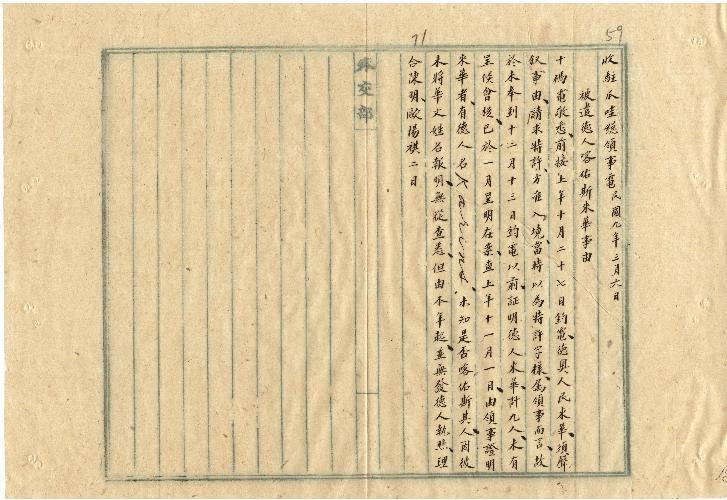 59
71
收駐爪哇總領事電民國九年三月六日
被遣德人喀佑斯來華事由
十碼電敬悉前接上年十月二十七日鈞電德奧人民來華須聲
敘事由請求特許方准入境當時以為特許字樣屬領事而言故
於未奉到十二月十三日鈞電以前証明德人來華計九人未有
呈候會核已於一月呈明在案查上年十一月一日由領事證明
來華者有德人名 未知是否喀佑斯其人因彼
未將華文姓名報明無從查悉但由本年起並無發德人執照理
合陳明歐陽祺二日
外交部